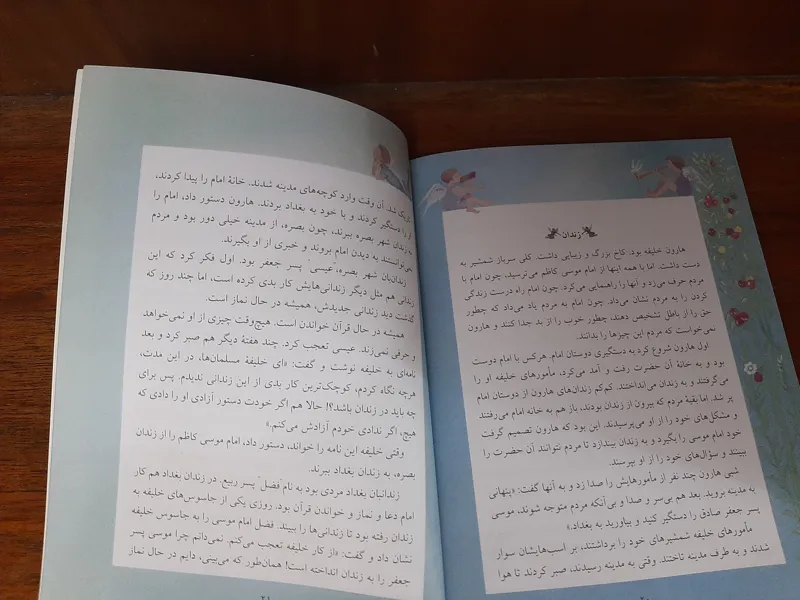 زندان
هارون خلیفه بود. کاخ بزرگ و زیبایی داشت. کلی سرباز شمشیر به
دست داشت. اما با همه اینها از امام موسی کاظم می‌ترسید، چون امام با
مردم حرف می‌زد و آنها را راهنمایی می‌کرد. چون امام راه درست زندگی
کردن را به مردم نشان می‌داد. چون امام به مردم یاد می‌داد که چطور
حق را از باطل تشخیص دهند، چطور خوب را از بد جدا کنند و هارون
نمی‌خواست که مردم این چیزها را بدانند.
اول هارون شروع کرد به دستگیری دوستان امام. هرکس با امام دوست
بود و به خانهٔ آن حضرت رفت و آمد می‌کرد، مأمورهای خلیفه او را
می‌گرفتند و به زندان می‌انداختند. کم‌کم زندان‌های هارون از دوستان امام
پر شد. اما بقیهٔ مردم که بیرون از زندان بودند، باز هم به خانه امام می‌رفتند
و مشکل‌های خود را از او می‌پرسیدند. این بود که هارون تصمیم گرفت
خود امام موسی را بگیرد و به زندان بیندازد تا مردم نتوانند آن حضرت را
ببینند و سؤال‌های خود را از او بپرسند.
شبی هارون چند نفر از مأمورهایش را صدا زد و به آنها گفت: «پنهانی
به مدینه بروید. بعد هم بی‌سر و صدا و بی‌آنکه مردم متوجه شوند، موسی
پسر جعفر صادق را دستگیر کنید و بیاورید به بغداد.»
مأمورهای خلیفه شمشیرهای خود را برداشتند، بر اسب‌هایشان سوار
شدند و به طرف مدینه تاختند. وقتی به مدینه رسیدند، صبر کردند تا هوا
تاریک شد. آن وقت وارد کوچه‌های مدینه شدند. خانهٔ امام را پیدا کردند،
او را دستگیر کردند و با خود به بغداد بردند. هارون دستور داد، امام را
به زندان شهر بصره ببرند، چون بصره، از مدینه خیلی دور بود و مردم
نمی‌توانستند به دیدن امام بروند و خبری از او بگیرند.
زندان‌بان شهر بصره، "عیسی" پسر جعفر بود. اول فکر کرد که این
زندانی هم مثل دیگر زندانی‌هایش کار بدی کرده است، اما چند روز که
گذشت دید زندانی جدیدش، همیشه در حال نماز است.
همیشه در حال قرآن خواندن است. هیچ‌وقت چیزی از او نمی‌خواهد
و حرفی نمی‌زند. عیسی تعجب کرد. چند هفتهٔ دیگر هم صبر کرد و بعد
نامه‌ای به خلیفه نوشت و گفت: «ای خلیفهٔ مسلمان‌ها، در این مدت،
هرچه نگاه کردم، کوچک‌ترین کار بدی از این زندانی ندیدم. پس برای
چه باید در زندان باشد؟! حالا هم اگر خودت دستور آزادی او را دادی که
هیچ، اگر ندادی خودم آزادش می‌کنم.»
وقتی خلیفه این نامه را خواند، دستور داد، امام موسی کاظم را از زندان
بصره، به زندان بغداد ببرند.
زندانبان بغداد مردی بود به نام "فضل" پسر ربیع. در زندان بغداد هم کار
امام دعا و نماز و خواندن قرآن بود. روزی یکی از جاسوس‌های خلیفه به
زندان رفته بود تا زندانی‌ها را ببیند. فضل امام موسی را به جاسوس خلیفه
نشان داد و گفت: «از کار خلیفه تعجب می‌کنم. نمی‌دانم چرا موسی پسر
جعفر را به زندان انداخته است! همان‌طور که می‌بینی، دایم در حال نماز